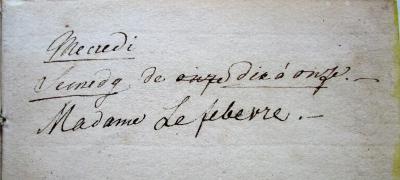 Mecredi
Samedy de onze dix à onze. —
Madame Lefebvre. —